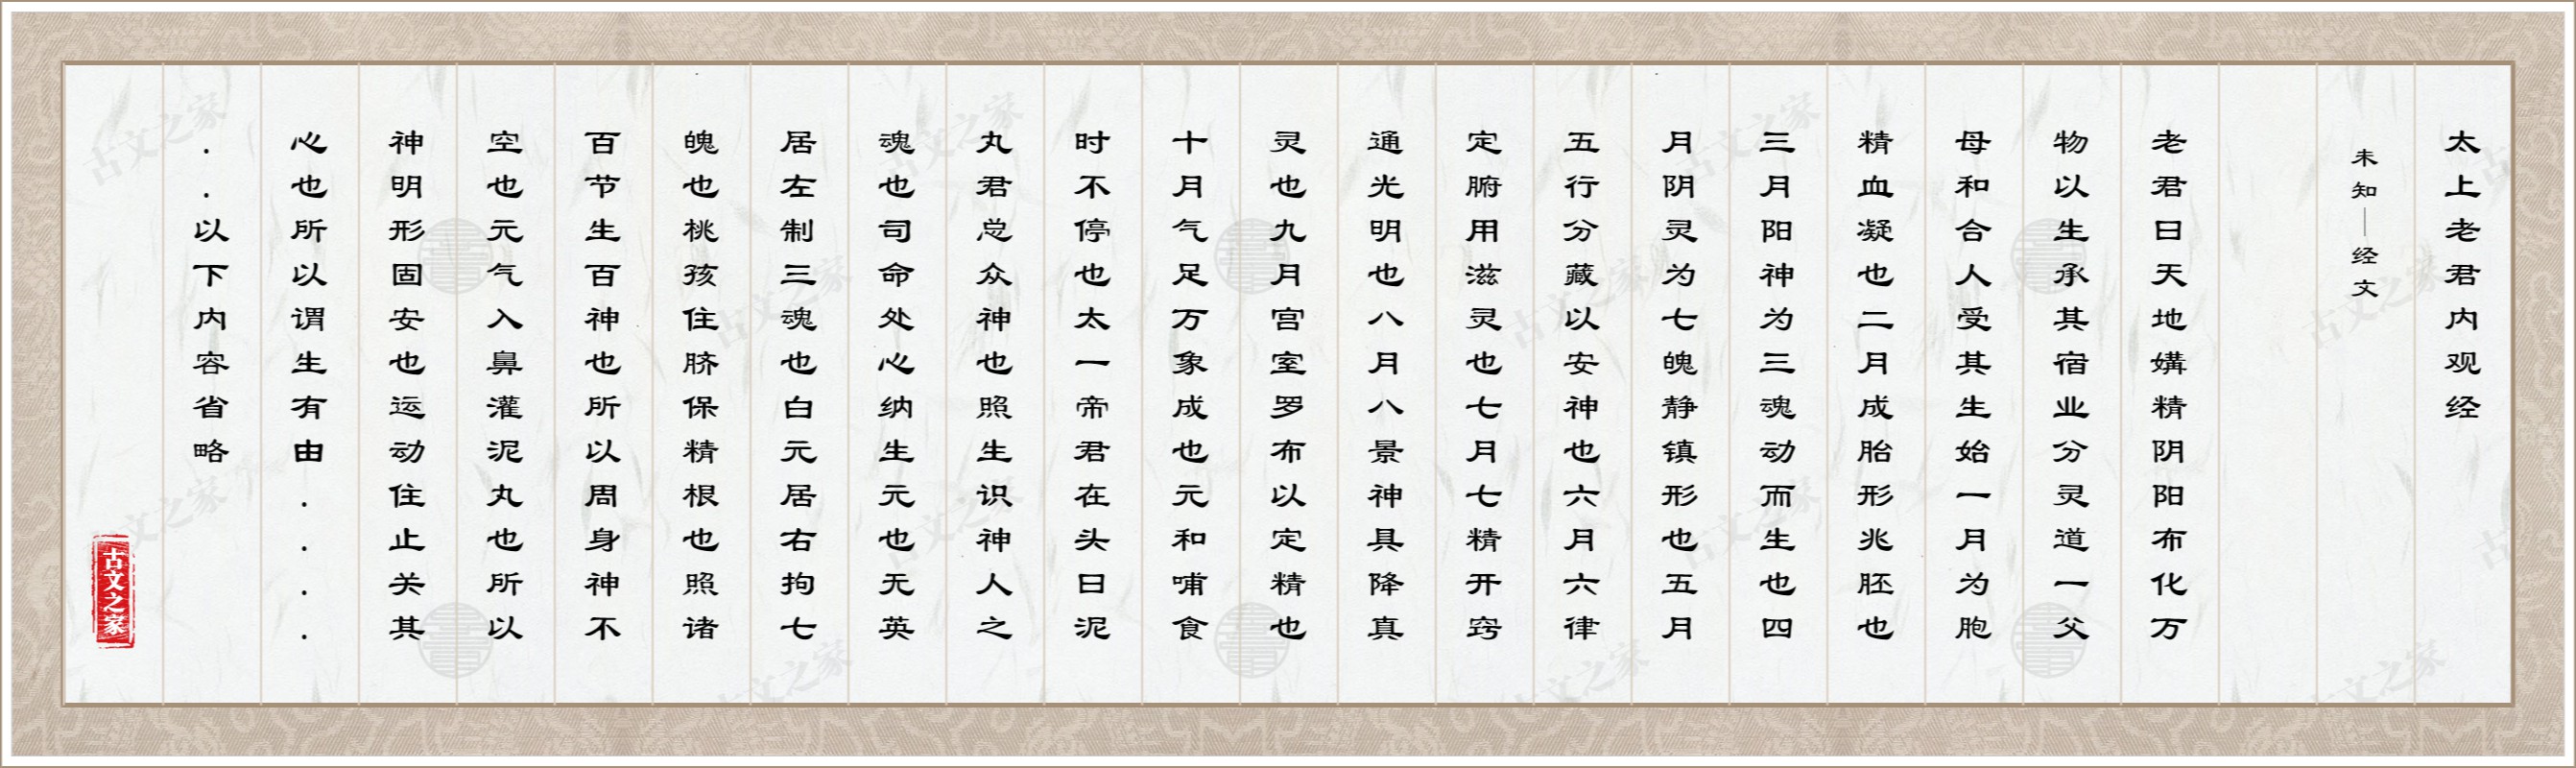 太上老君内观经
未知｜经文
老君曰天地媾精阴阳布化万
物以生承其宿业分灵道一父
母和合人受其生始一月为胞
精血凝也二月成胎形兆胚也
三月阳神为三魂动而生也四
月阴灵为七魄静镇形也五月
五行分藏以安神也六月六律
定腑用滋灵也七月七精开窍
通光明也八月八景神具降真
灵也九月宫室罗布以定精也
十月气足万象成也元和哺食
时不停也太一帝君在头曰泥
丸君总众神也照生识神人之
魂也司命处心纳生元也无英
居左制三魂也白元居右拘七
魄也桃孩住脐保精根也照诸
百节生百神也所以周身神不
空也元气入鼻灌泥丸也所以
神明形固安也运动住止关其
心也所以谓生有由....
..以下内容省略
古文之家